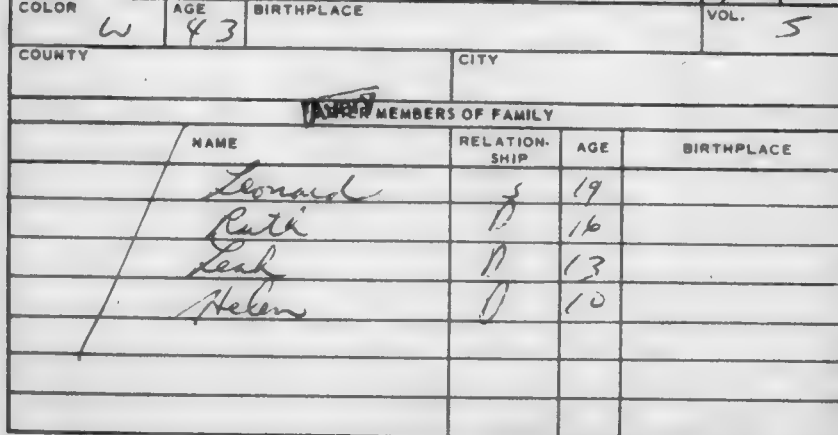 COLOR W AGE 43 BIRTHPLACE VOL. 5
COUNTY CITY
MEMBERS OF FAMILY
NAME RELATION-SHIP AGE BIRTHPLACE
Leonard S 19
Ruth D 16
Leah D 13
Helen D 10